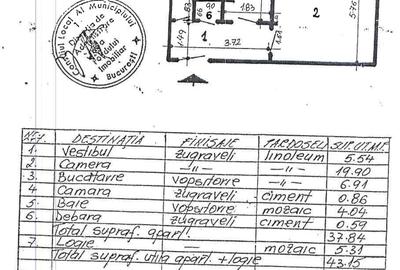 Consiliul Local Al Municipiului
București
Imobiliar
90
6
183
2
5.76
1.49
1
3.72
NR. DESTINAȚIA FINISAJE PARDOSELI SUP. UT. M.P.
1. Vestibul zugraveli linoleum 5.54
2. Camera —"— —"— 19.90
3. Bucatarie vopsitorie —"— 6.91
4 Camara zugraveli ciment 0.86
5. Baie vopsitorie mozaic 4.04
6. Debara zugraveli ciment 0.59
Total supraf. apart. 37.84
7. Logie — mozaic 5.31
Total supraf. utila apart. + logie 43.15